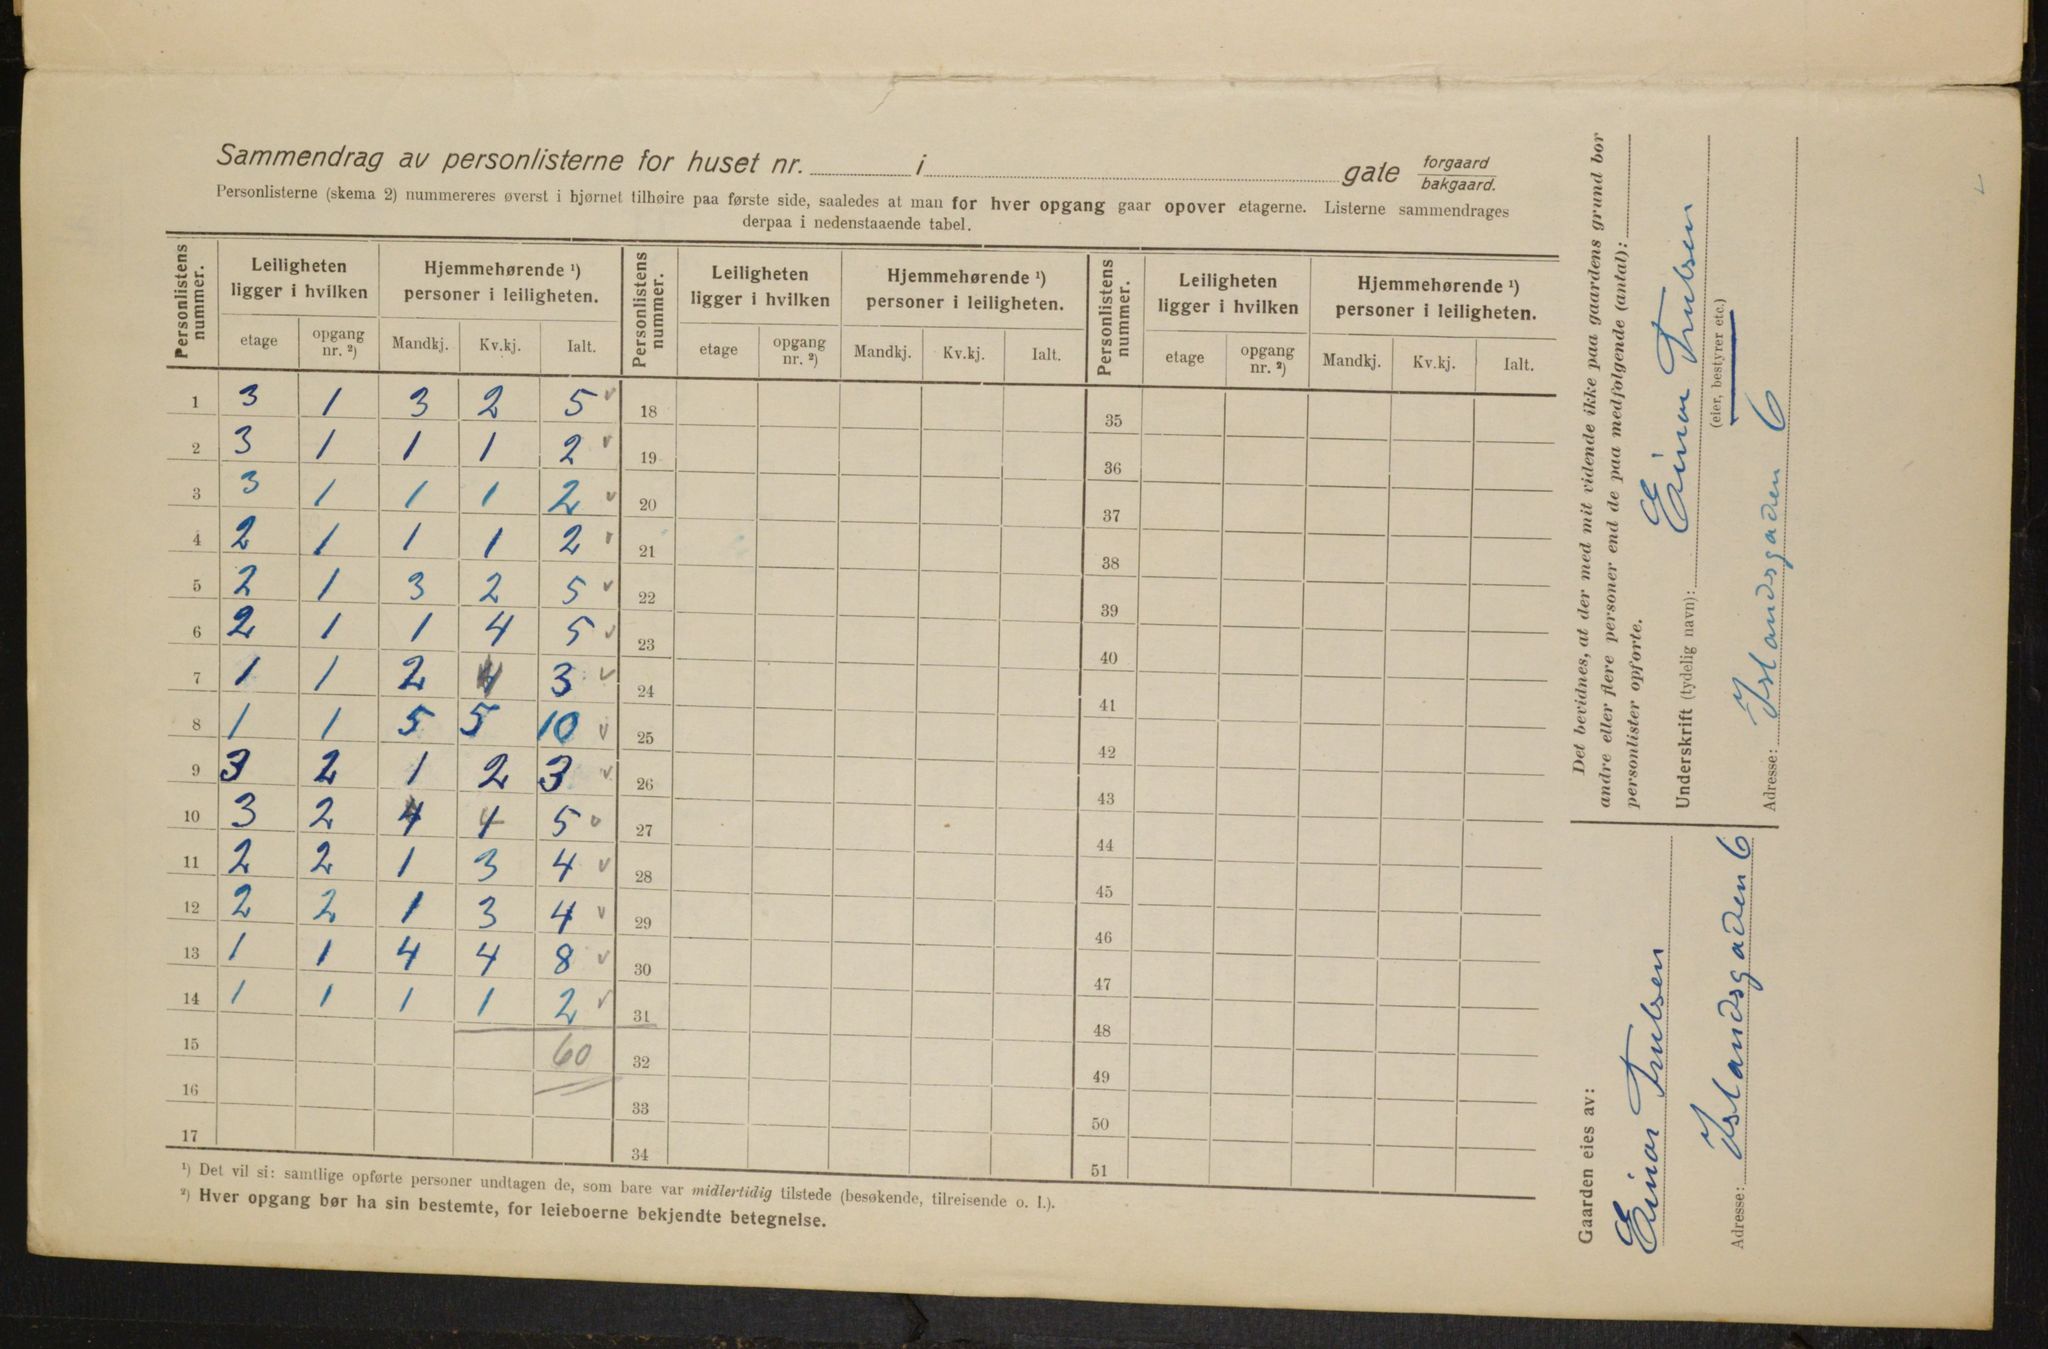 Sammendrag av personlisterne for huset nr. i gate forgaard bakgaard.
Personlisterne (skema 2) nummereres øverst i hjørnet tilhøire paa første side, saaledes at man for hver opgang gaar opover etagerne. Listerne sammendrages
derpaa i nedenstaaende tabel.
Personlistens nummer. Leiligheten ligger i hvilken Hjemmehørende ¹) personer i leiligheten. Personlistens nummer. Leiligheten ligger i hvilken Hjemmehørende ¹) personer i leiligheten. Personlistens nummer. Leiligheten ligger i hvilken Hjemmehørende ¹) personer i leiligheten.
etage opgang nr. ²) Mandkj. Kv.kj. Ialt. etage opgang nr. ²) Mandkj. Kv.kj. Ialt. etage opgang nr. ²) Mandkj. Kv.kj. Ialt.
1 3 1 3 2 5 18 35
2 3 1 1 1 2 19 36
3 3 1 1 1 2 20 37
4 2 1 1 1 2 21 38
5 2 1 3 2 5 22 39
6 2 1 1 4 5 23 40
7 1 1 2 3 24 41
8 1 1 5 5 10 25 42
9 3 2 1 2 3 26 43
10 3 2 4 1 5 27 44
11 2 2 1 3 4 28 45
12 2 2 1 3 4 29 46
13 1 1 4 4 8 30 47
14 1 1 1 1 2 31 48
15 60 32 49
16 33 50
17 34 51
¹) Det vil si: samtlige opførte personer undtagen de, som bare var midlertidig tilstede (besøkende, tilreisende o. l.).
²) Hver opgang bør ha sin bestemte, for leieboerne bekjendte betegnelse.
Det bevidnes, at der med mit vidende ikke paa gaardens grund bor
andre eller flere personer end de paa medfølgende (antal):
personlister opførte.
Underskrift (tydelig navn): Einar
(eier, bestyrer etc.)
Adresse: Islandsgaden 6
Gaarden eies av:
Einar
Adresse: Islandsgaden 6